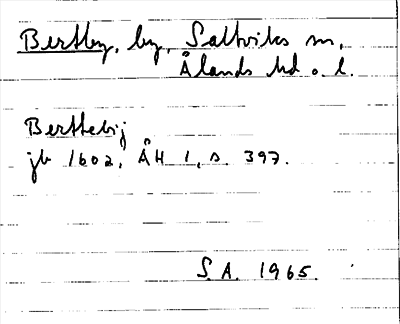 Bertby, by, Saltviks sn,
Ålands hd o. l.
Berthebij
jb 1602, ÅH 1, s. 397.
S.A. 1965.